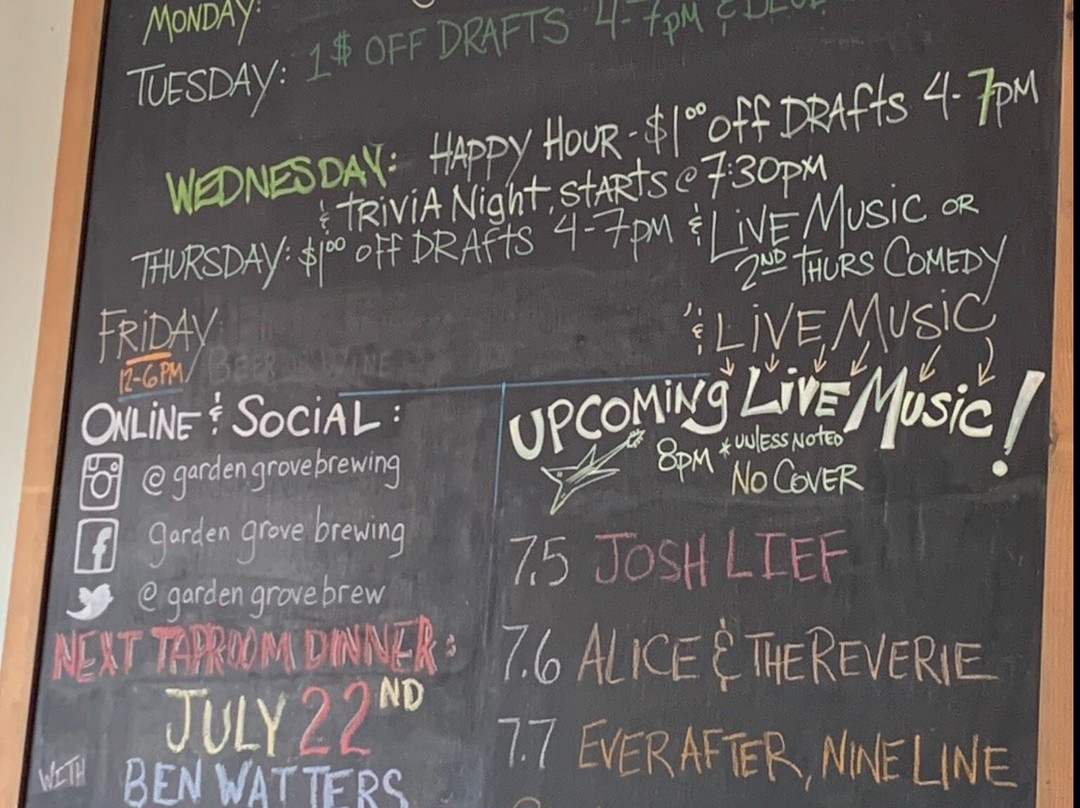 MONDAY:
TUESDAY: 1$ OFF DRAFTS 4-7PM &
WEDNESDAY: HAPPY HOUR - $1⁰⁰ off DRAfts 4-7PM
& TRiViA Night, stARts @ 7:30PM
THURSDAY: $1⁰⁰ off DRAfts 4-7PM & LiVE MUSiC OR
2ND THURS COMEDY
FRiDAY: & LiVE MUSiC
12-6PM/ BEER OR WINE
ONLiNE & SOCiAL:
@ gardengrovebrewing
garden grove brewing
@ gardengrovebrew
NEXT TAPROOM DINNER:
JULY 22ND
WITH BEN WATTERS
UPCOMiNg LiVE MUSiC!
8PM *UNLESS NOTED
NO COVER
7.5 JOSH LIEF
7.6 ALICE & THE REVERIE
7.7 EVER AFTER, NINE LINE